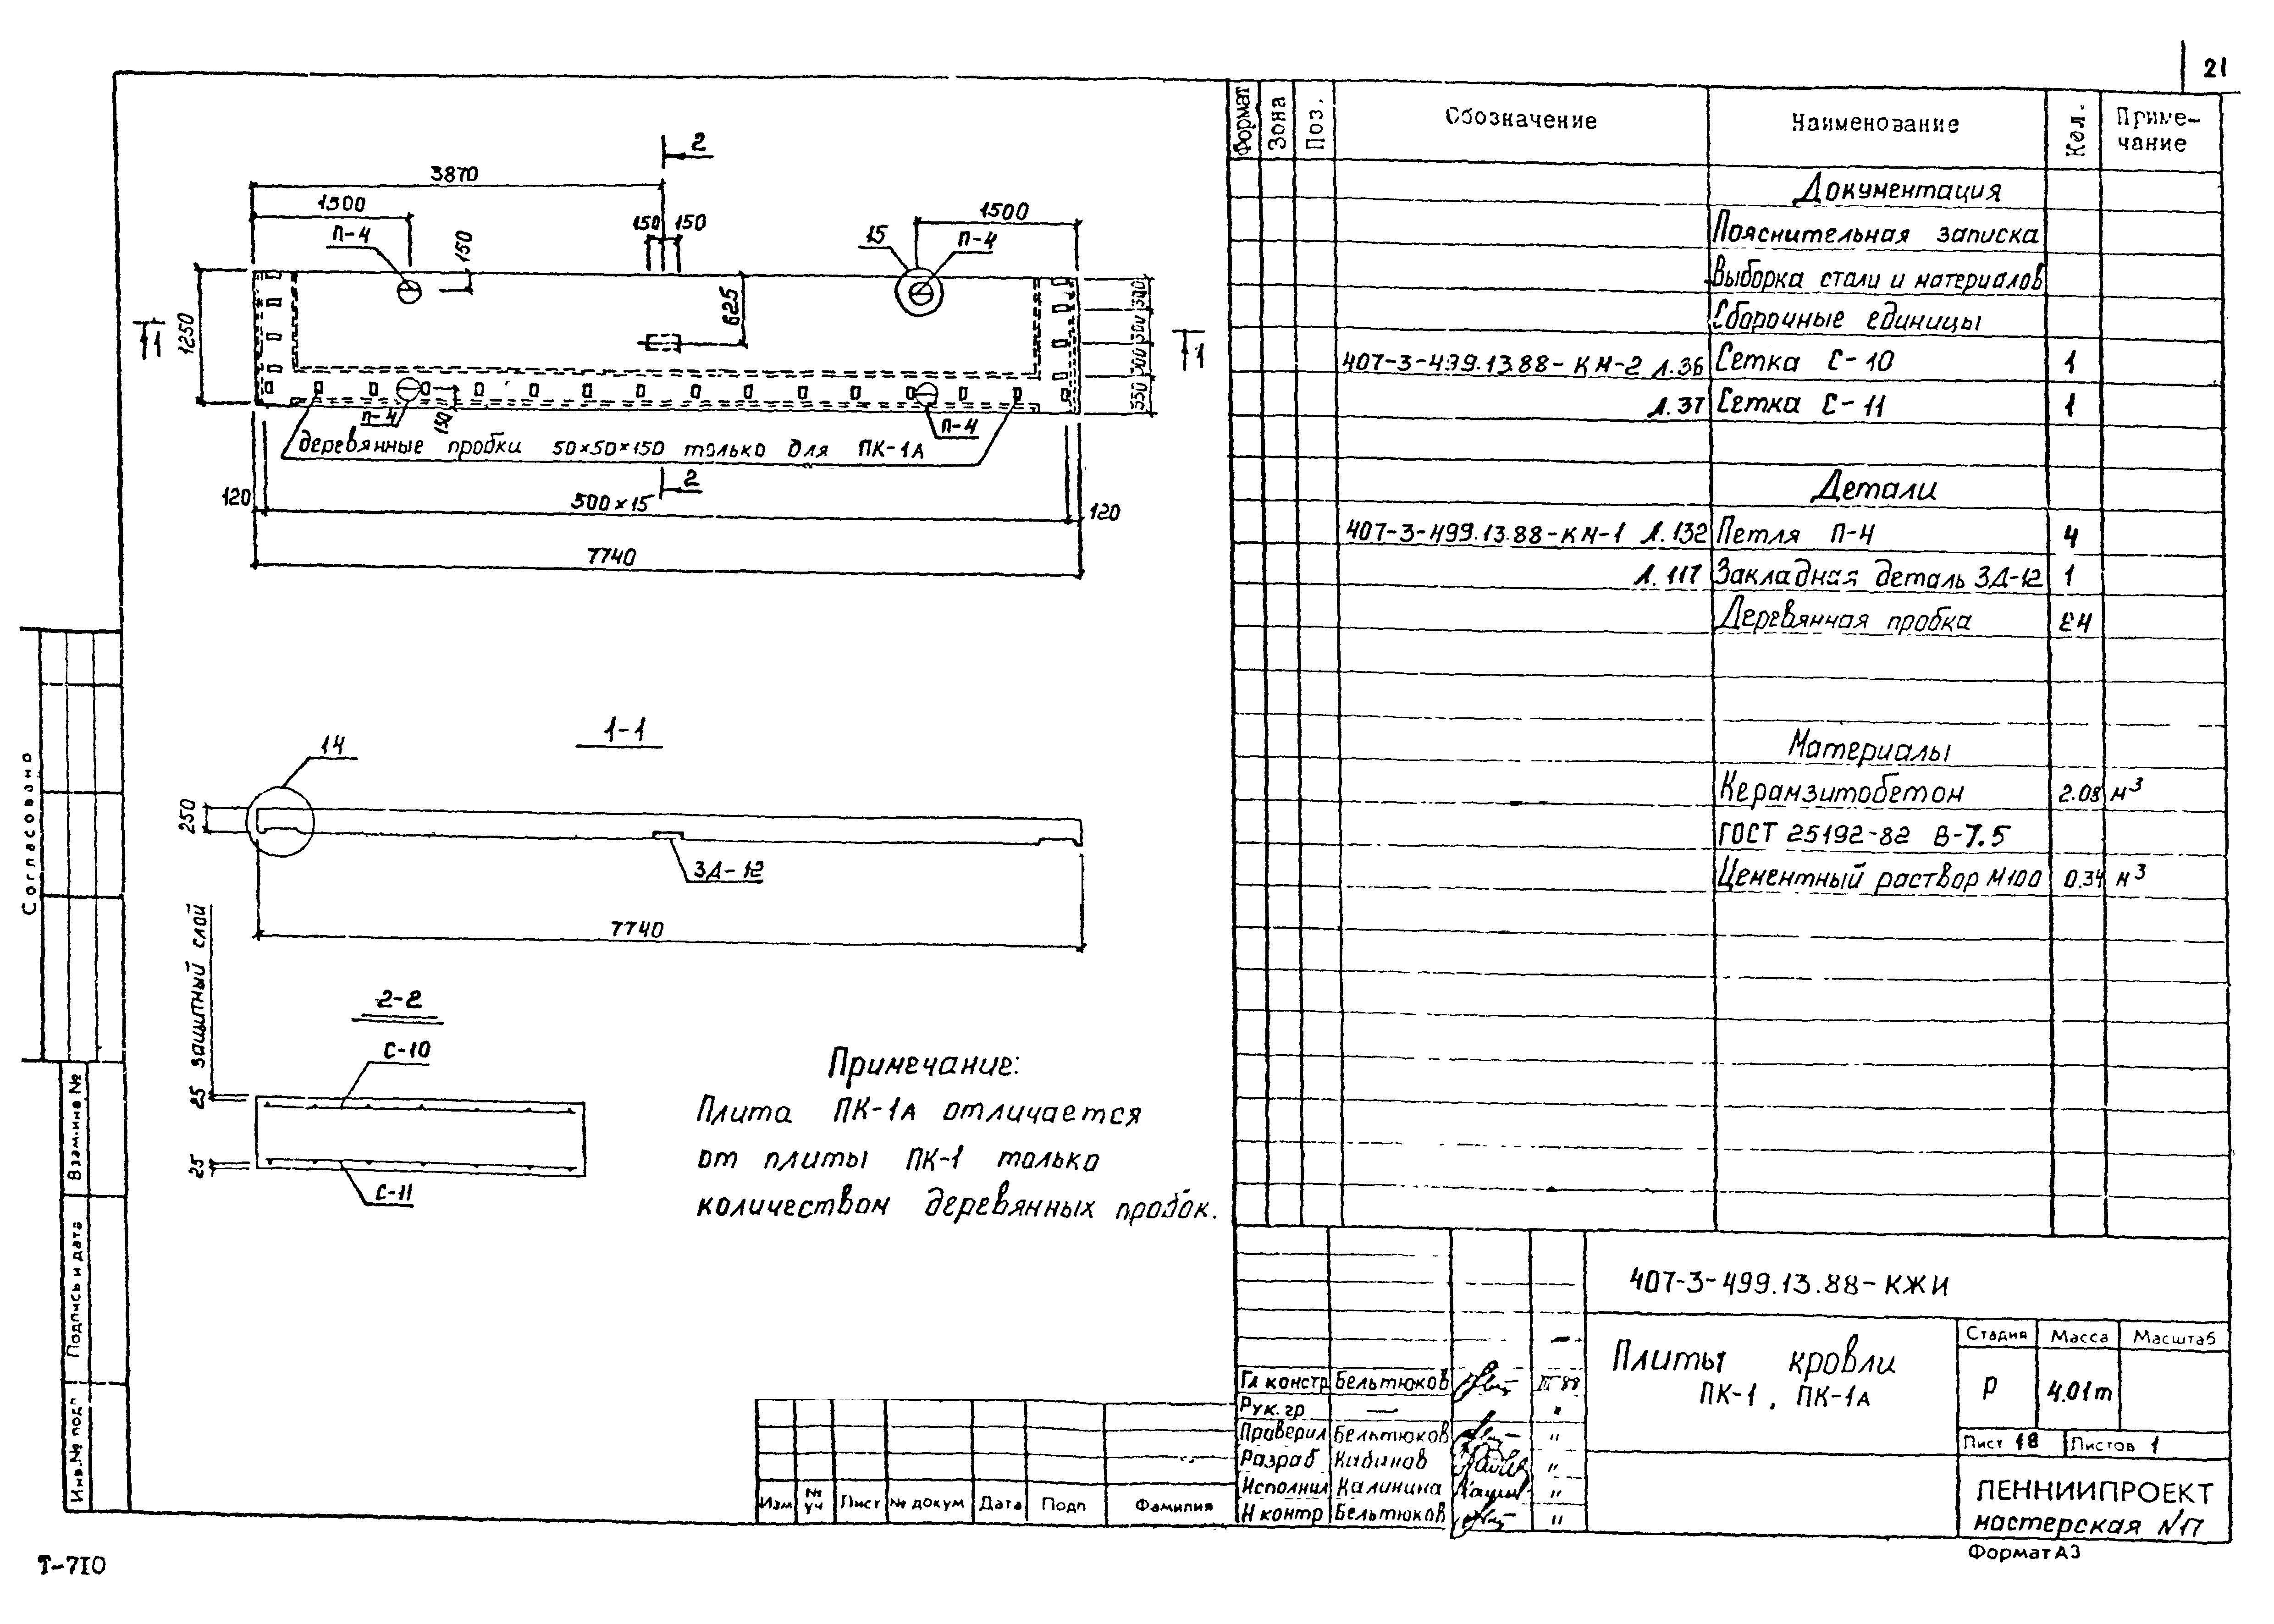 21
2
3870
1500
П-4
150
150
150
15
П-4
1500
1250
625
1
1
300
300
300
350
П-4
150
П-4
деревянные пробки 50×50×150 только для ПК-1А
120
500×15
2
120
7740
1-1
14
250
ЗД-12
7740
2-2
защитный слой
С-10
25
25
С-11
Примечание:
Плита ПК-1А отличается
от плиты ПК-1 только
количеством деревянных пробок.
Формат
Зона
Поз.
Обозначение
Наименование
Кол.
Приме-
чание
Документация
Пояснительная записка
Выборка стали и материалов
Сборочные единицы
407-3-499.13.88-КМ-2 Л.36 Сетка С-10 1
Л.37 Сетка С-11 1
Детали
407-3-499.13.88-КМ-1 Л.132 Петля П-4 4
Л.117 Закладная деталь ЗД-12 1
Деревянная пробка 24
Материалы
Керамзитобетон 2.08 м³
ГОСТ 25192-82 В-7.5
Цементный раствор М100 0.34 м³
407-3-499.13.88-КЖИ
Плиты кровли
ПК-1, ПК-1А
Стадия Масса Масштаб
Р 4.01т
Лист 18 Листов 1
ЛЕННИИПРОЕКТ
мастерская №17
Формат А3
Гл констр Бельтюков III 88
Рук.гр — "
Проверил Бельтюков "
Разраб "
Исполнил Калинина "
Н контр Бельтюков "
Изм № уч Лист № докум Дата Подп Фамилия
Согласовано
Взам.инв №
Подпись и дата
Инв.№ подл
Т-710